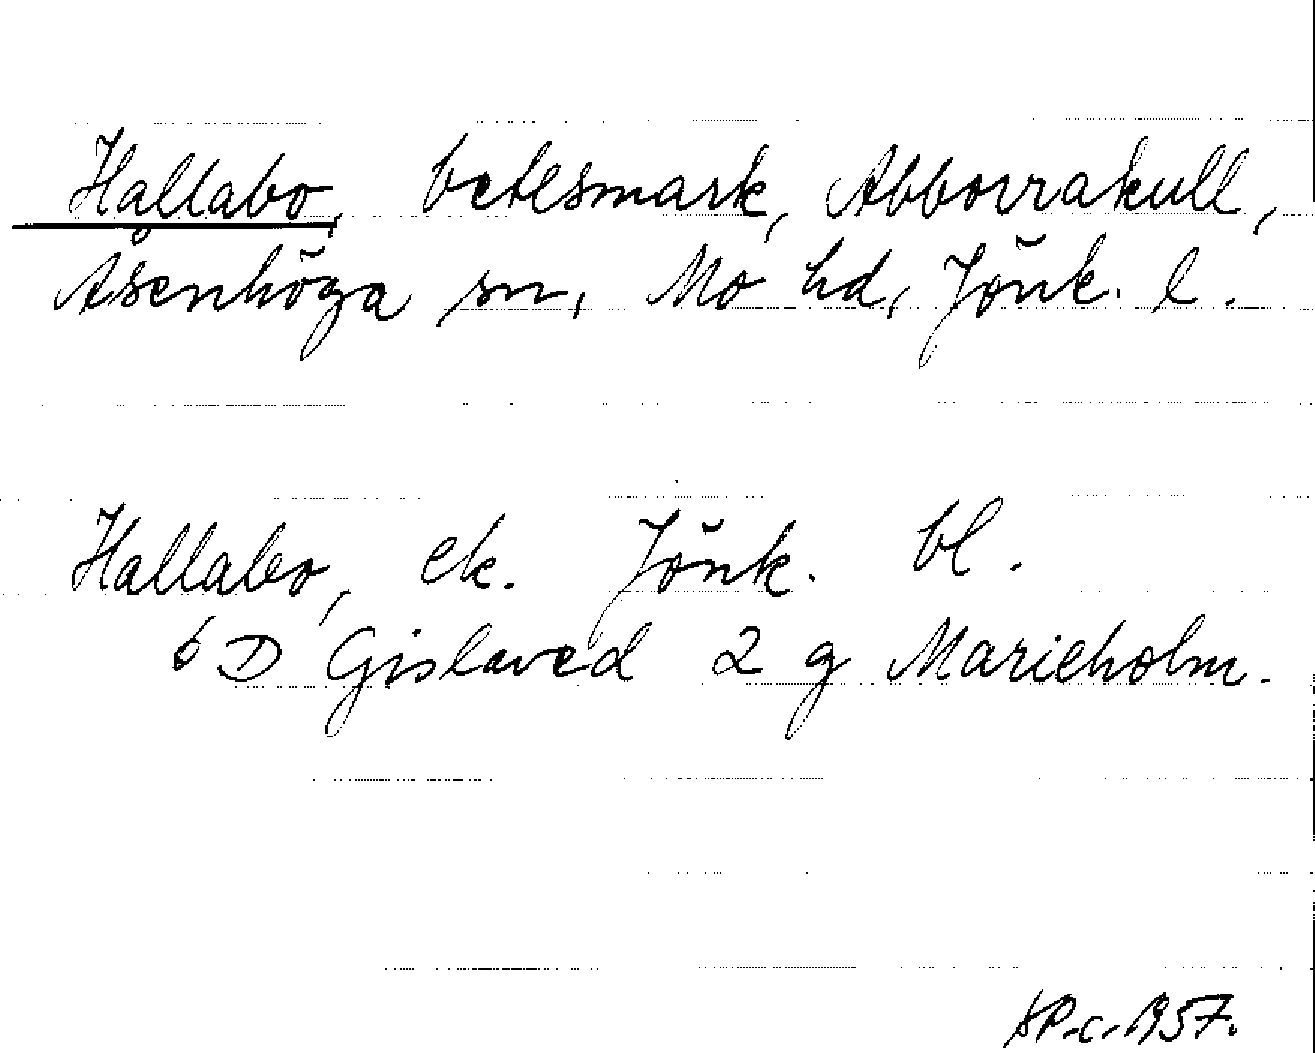 Hallabo, betesmark, Abborrakull,
Åsenhöga sn, Mo hd, Jönk. l.
Hallabo, ek. Jönk. bl.
5 D Gislaved 2 g Marieholm.
1957.